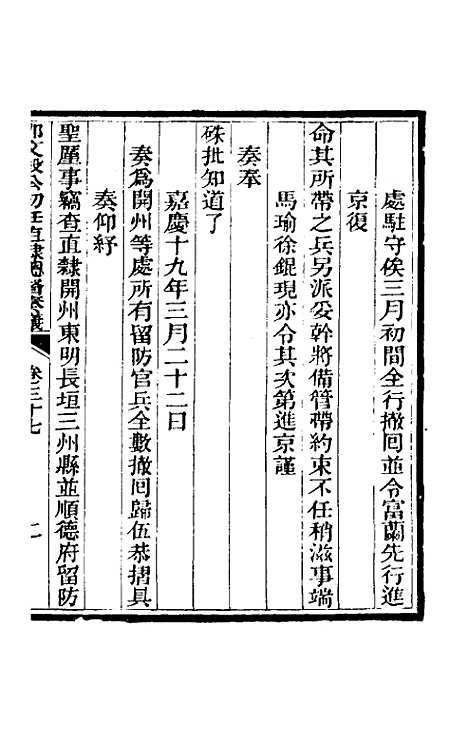 處駐守俟三月初間全行撤回並令富蘭先行進
京復
命其所帶之兵另派妥幹將備管帶約束不任稍滋事端
馬瑜徐錕現亦令其次第進京謹
奏奉
硃批知道了
嘉慶十九年三月二十二日
奏爲開州等處所有留防官兵全數撤回歸伍恭摺具
奏仰紓
聖廑事竊查直隸開州東明長垣三州縣並順德府留防
那文毅公初任直隸總督奏議
卷三十七
二